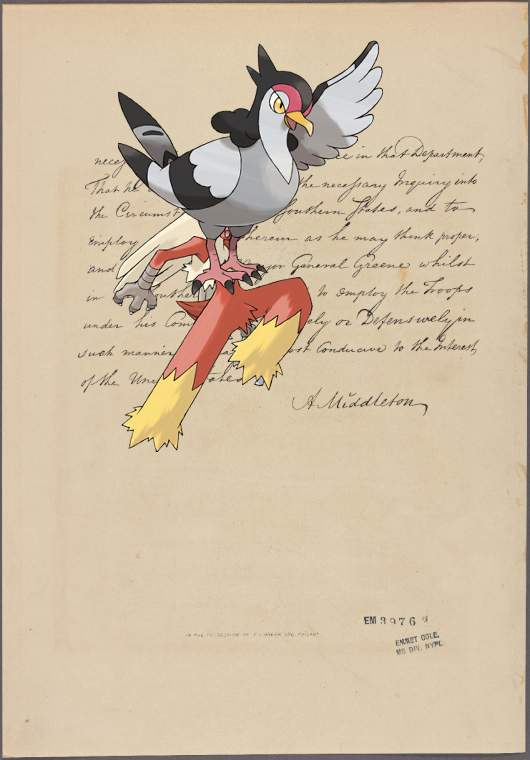 in that Department,
That he the necessary Inquiry into
the Circumst Southern States, and to
Employ herein as he may think proper,
and General Greene whilst
in to employ the Troops
under his Com ely or Defensively in
such manner ost Conducive to the Interest
of the Uni tates
A Middleton
IN THE POSSESSION OF
EM 3976
EMMET COLL.
MS DIV. NYPL